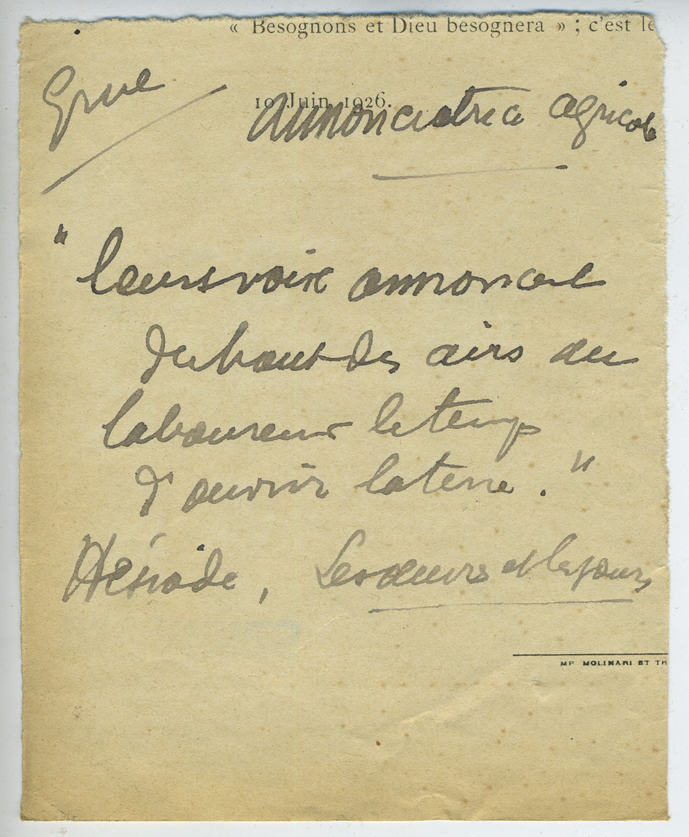 « Besognons et Dieu besognera » ; c'est le
Grue
10 Juin 1926.
annonciatrice agricole
"leurs voix annoncent
du haut des airs au
laboureur le temps
d'ouvrir la terre."
Hésiode, Les œuvres et les jours
MP MOLINARI ET TH